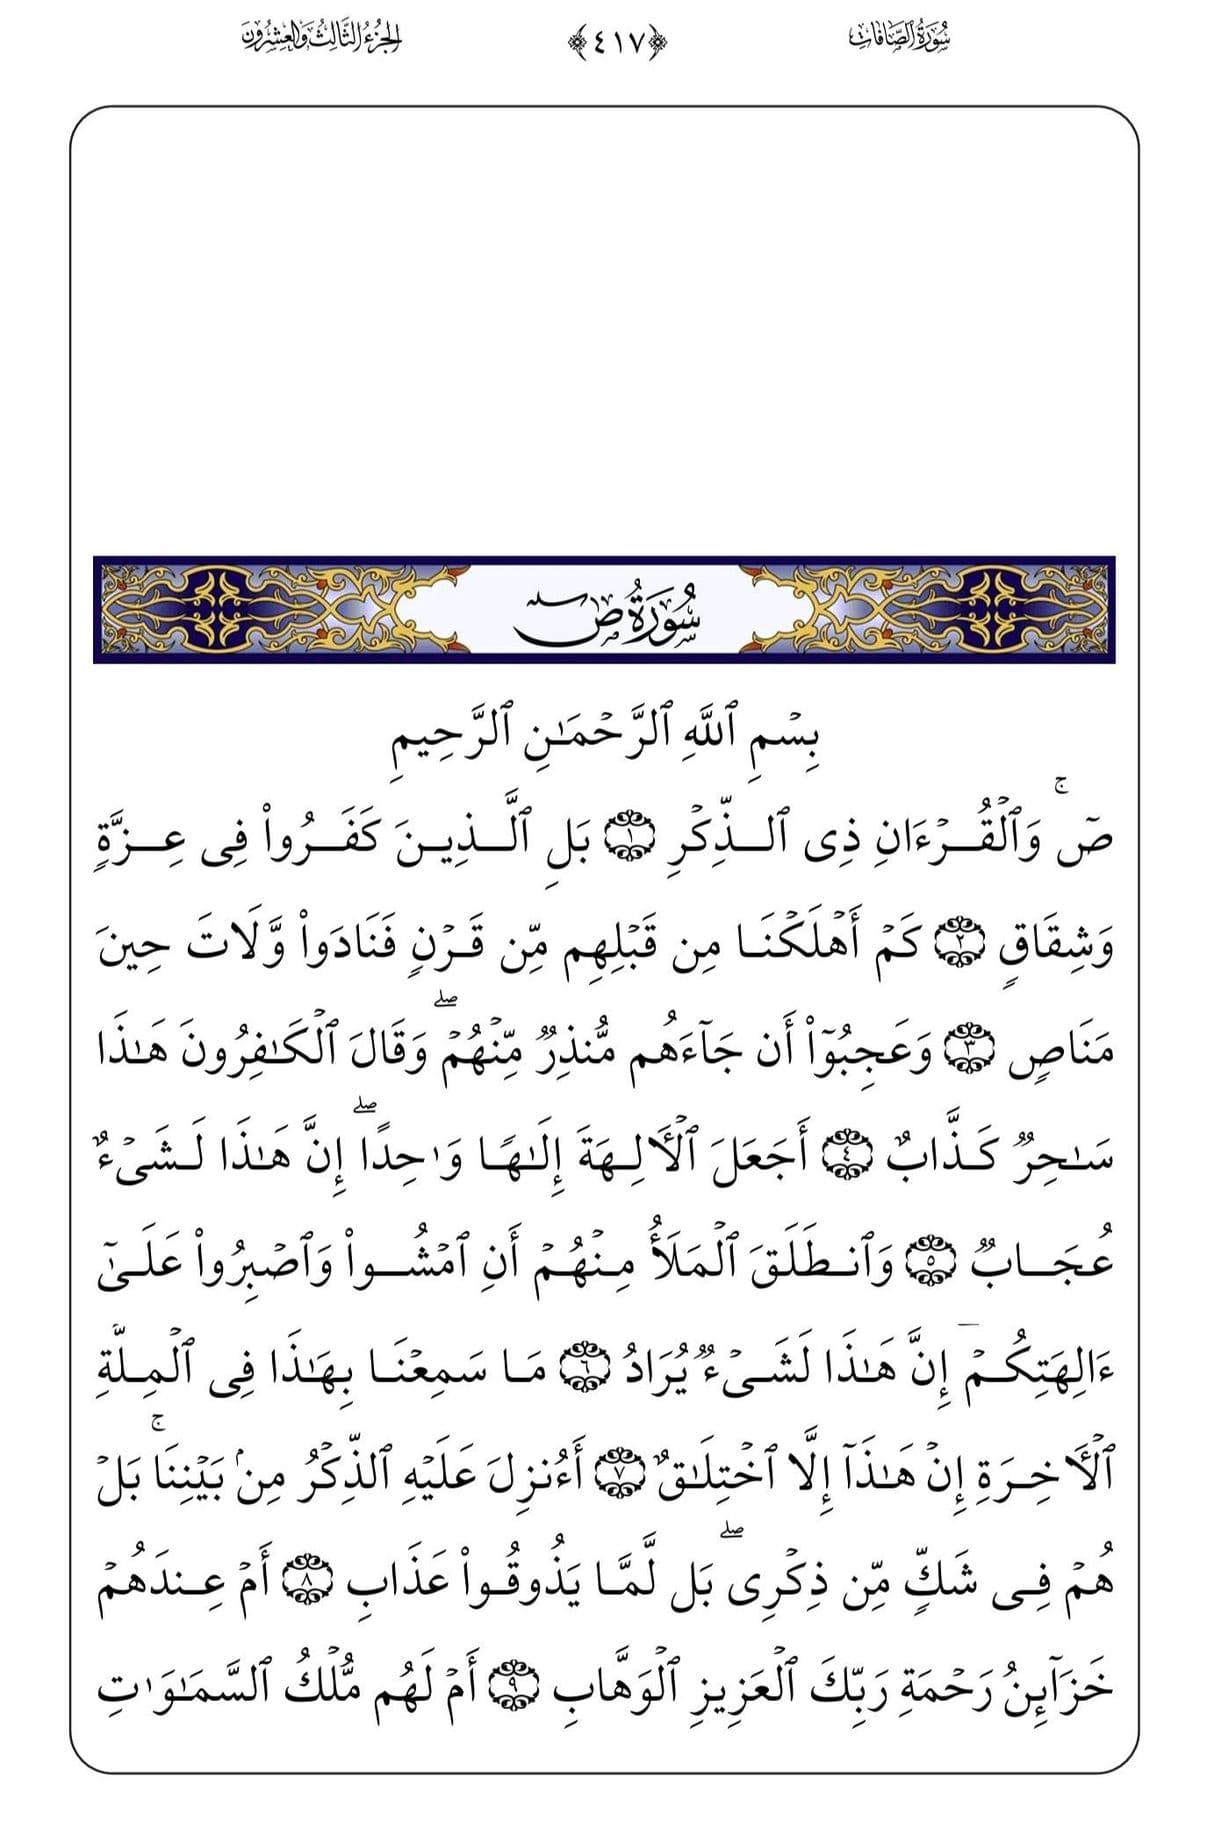 سُورَةُ الصَّافَّاتِ ﴿٤١٧﴾ الجُزْءُ الثَّالِثُ وَالعِشْرُونَ
سُورَةُ صٓ
بِسۡمِ ٱللَّهِ ٱلرَّحۡمَـٰنِ ٱلرَّحِيمِ
صٓۚ وَٱلۡقُرۡءَانِ ذِى ٱلذِّكۡرِ ١ بَلِ ٱلَّذِينَ كَفَرُوا۟ فِى عِزَّةٍ
وَشِقَاقٍ ٢ كَمۡ أَهۡلَكۡنَا مِن قَبۡلِهِم مِّن قَرۡنٍ فَنَادَوا۟ وَّلَاتَ حِينَ
مَنَاصٍ ٣ وَعَجِبُوٓا۟ أَن جَآءَهُم مُّنذِرٌ مِّنۡهُمۡۖ وَقَالَ ٱلۡكَـٰفِرُونَ هَـٰذَا
سَـٰحِرٌ كَذَّابٌ ٤ أَجَعَلَ ٱلۡأَلِهَةَ إِلَـٰهًا وَٰحِدًاۖ إِنَّ هَـٰذَا لَشَىۡءٌ
عُجَابٌ ٥ وَٱنطَلَقَ ٱلۡمَلَأُ مِنۡهُمۡ أَنِ ٱمۡشُوا۟ وَٱصۡبِرُوا۟ عَلَىٰٓ
ءَالِهَتِكُمۡۖ إِنَّ هَـٰذَا لَشَىۡءٌ يُرَادُ ٦ مَا سَمِعۡنَا بِهَـٰذَا فِى ٱلۡمِلَّةِ
ٱلۡأَخِرَةِ إِنۡ هَـٰذَآ إِلَّا ٱخۡتِلَـٰقٌ ٧ أَءُنزِلَ عَلَيۡهِ ٱلذِّكۡرُ مِنۢ بَيۡنِنَاۚ بَلۡ
هُمۡ فِى شَكٍّ مِّن ذِكۡرِىۖ بَل لَّمَّا يَذُوقُوا۟ عَذَابِ ٨ أَمۡ عِندَهُمۡ
خَزَآئِنُ رَحۡمَةِ رَبِّكَ ٱلۡعَزِيزِ ٱلۡوَهَّابِ ٩ أَمۡ لَهُم مُّلۡكُ ٱلسَّمَـٰوَٰتِ